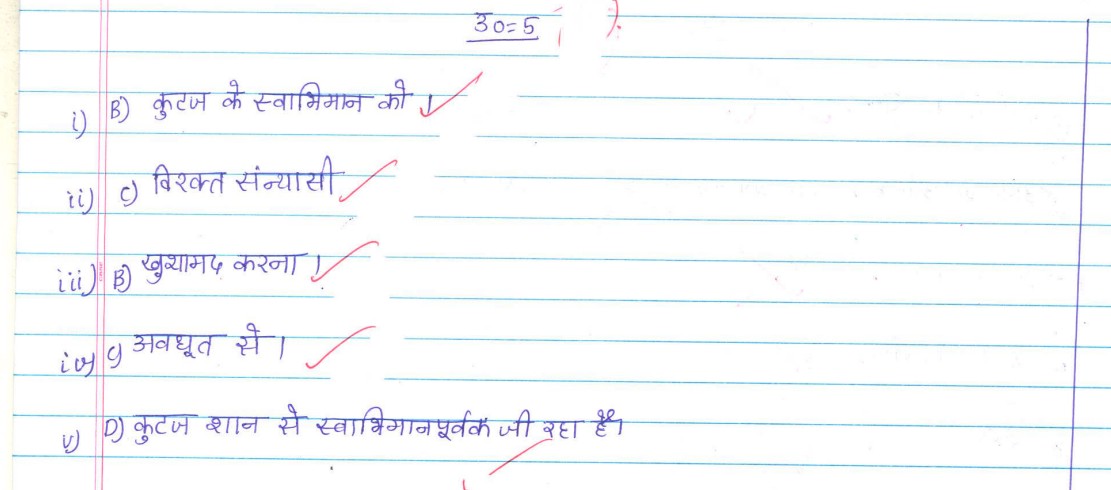 उ०=5
i) B) कुटज के स्वाभिमान को ।
ii) C) विरक्त संन्यासी
iii) B) खुशामद करना ।
iv) C) अवधूत से ।
v) D) कुटज शान से स्वाभिमानपूर्वक जी रहा है।